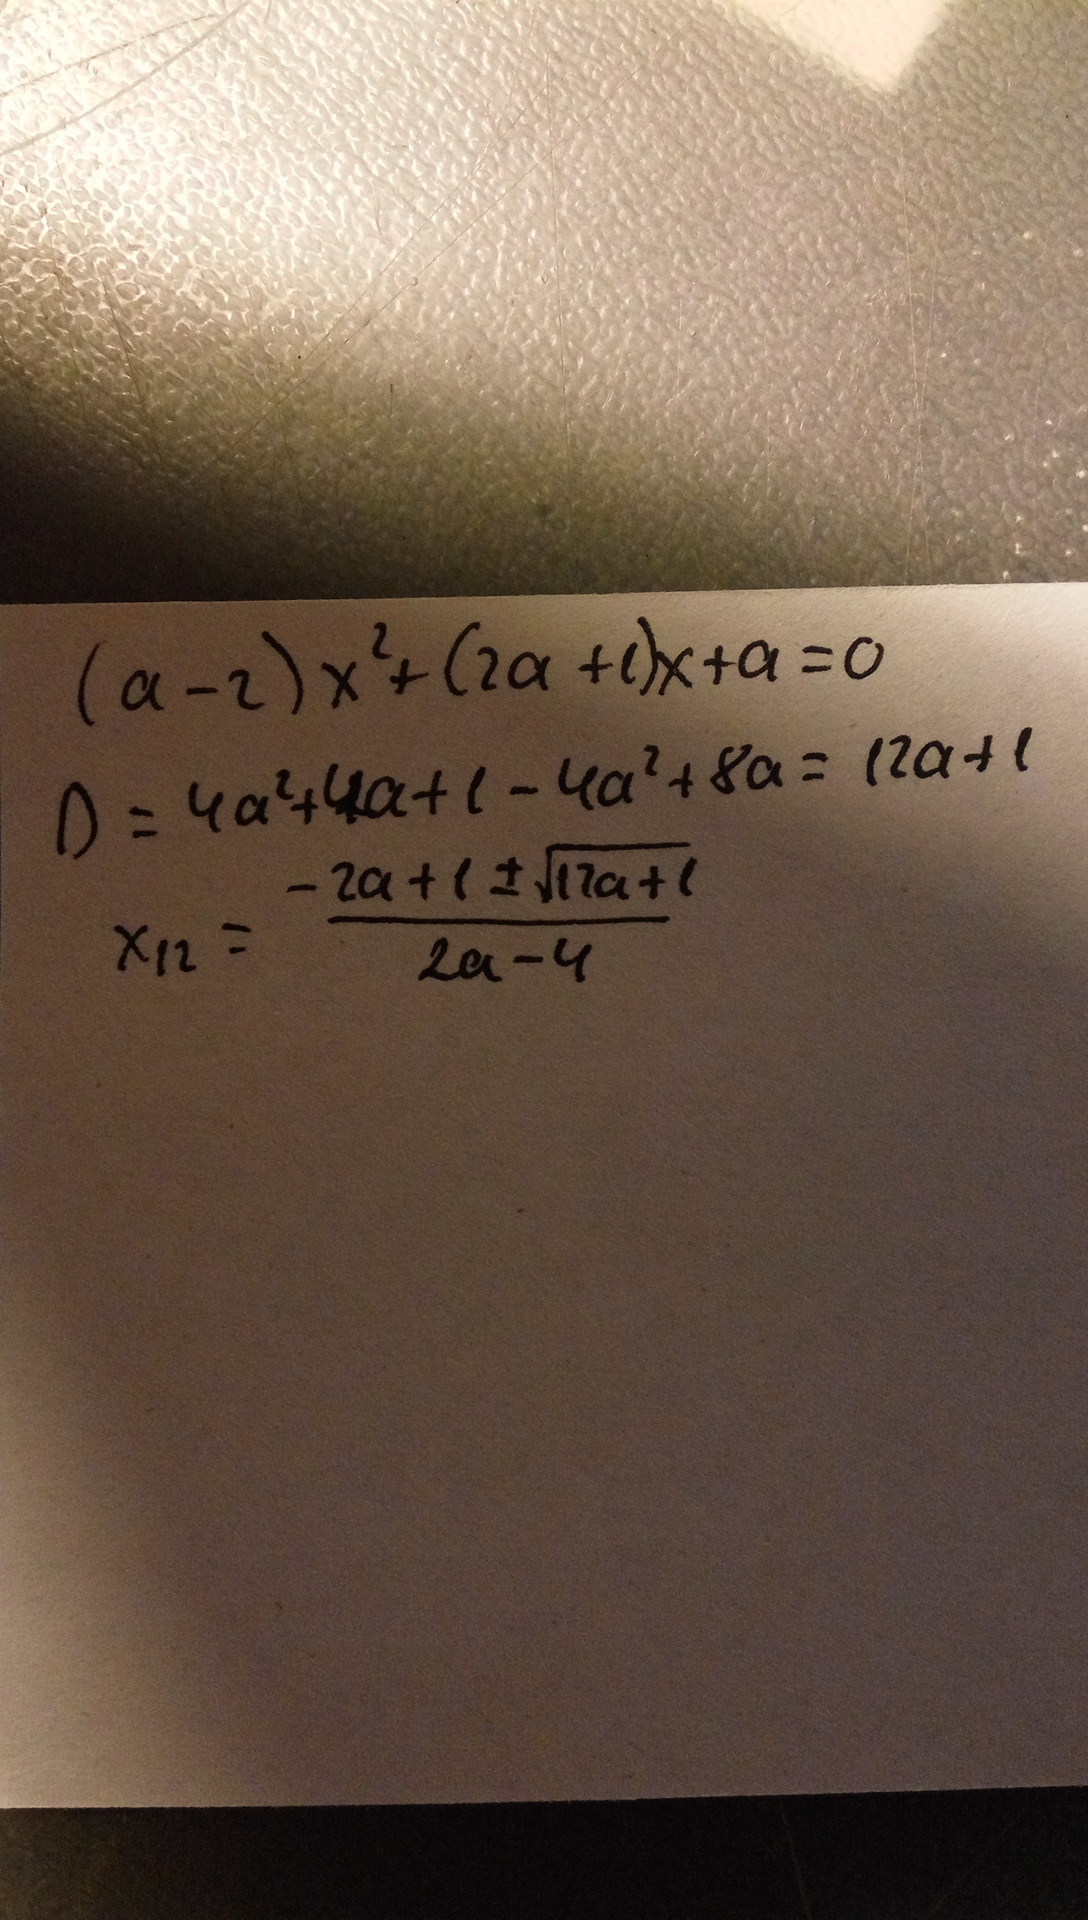 (a-2)x²+(2a+1)x+a=0
D=4a²+4a+1-4a²+8a=12a+1
x₁₂ = (-2a+1±√(12a+1))/(2a-4)